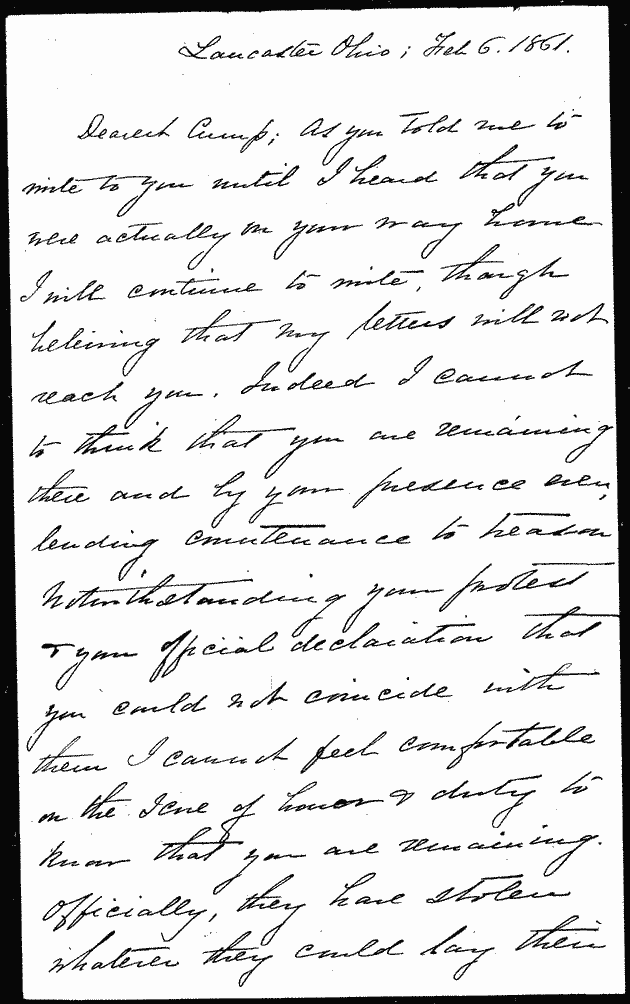 Lancaster Ohio; Feb 6. 1861.
Dearest Cump; As you told me to
write to you until I heard that you
were actually on your way home
I will continue to write, though
beleiving that my letters will not
reach you. Indeed I cannot
to think that you are remaining
there and by your presence even,
lending countenance to treason
Notwithstanding your protest
& your official declaration that
you could not coincide with
them I cannot feel comfortable
on the score of honor & duty to
know that you are remaining.
Officially, they have stolen
whatever they could lay their